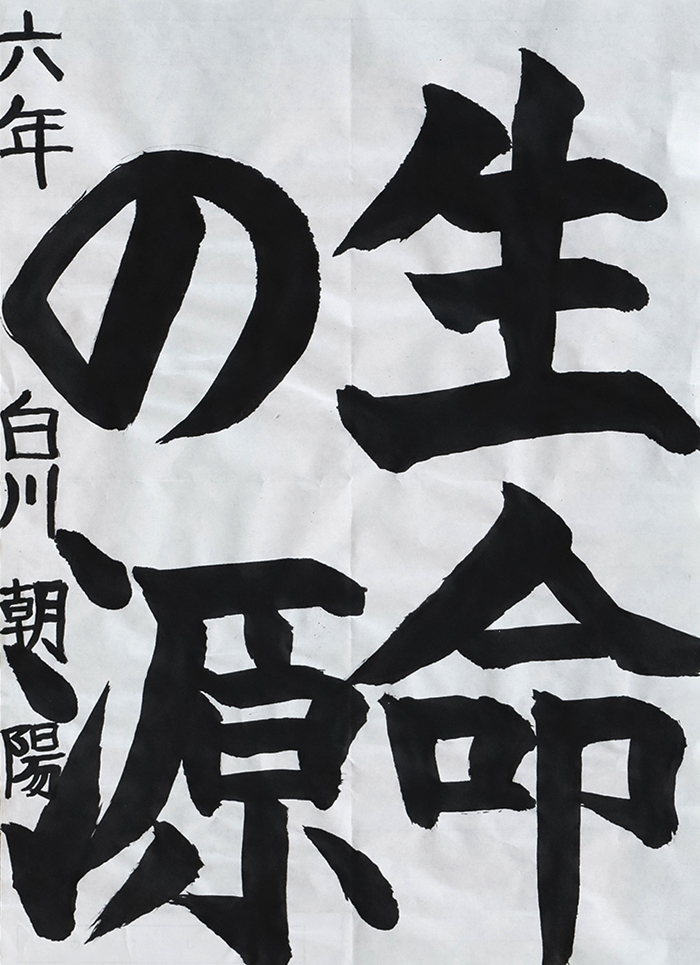 生命
の源
六年 白川 朝陽